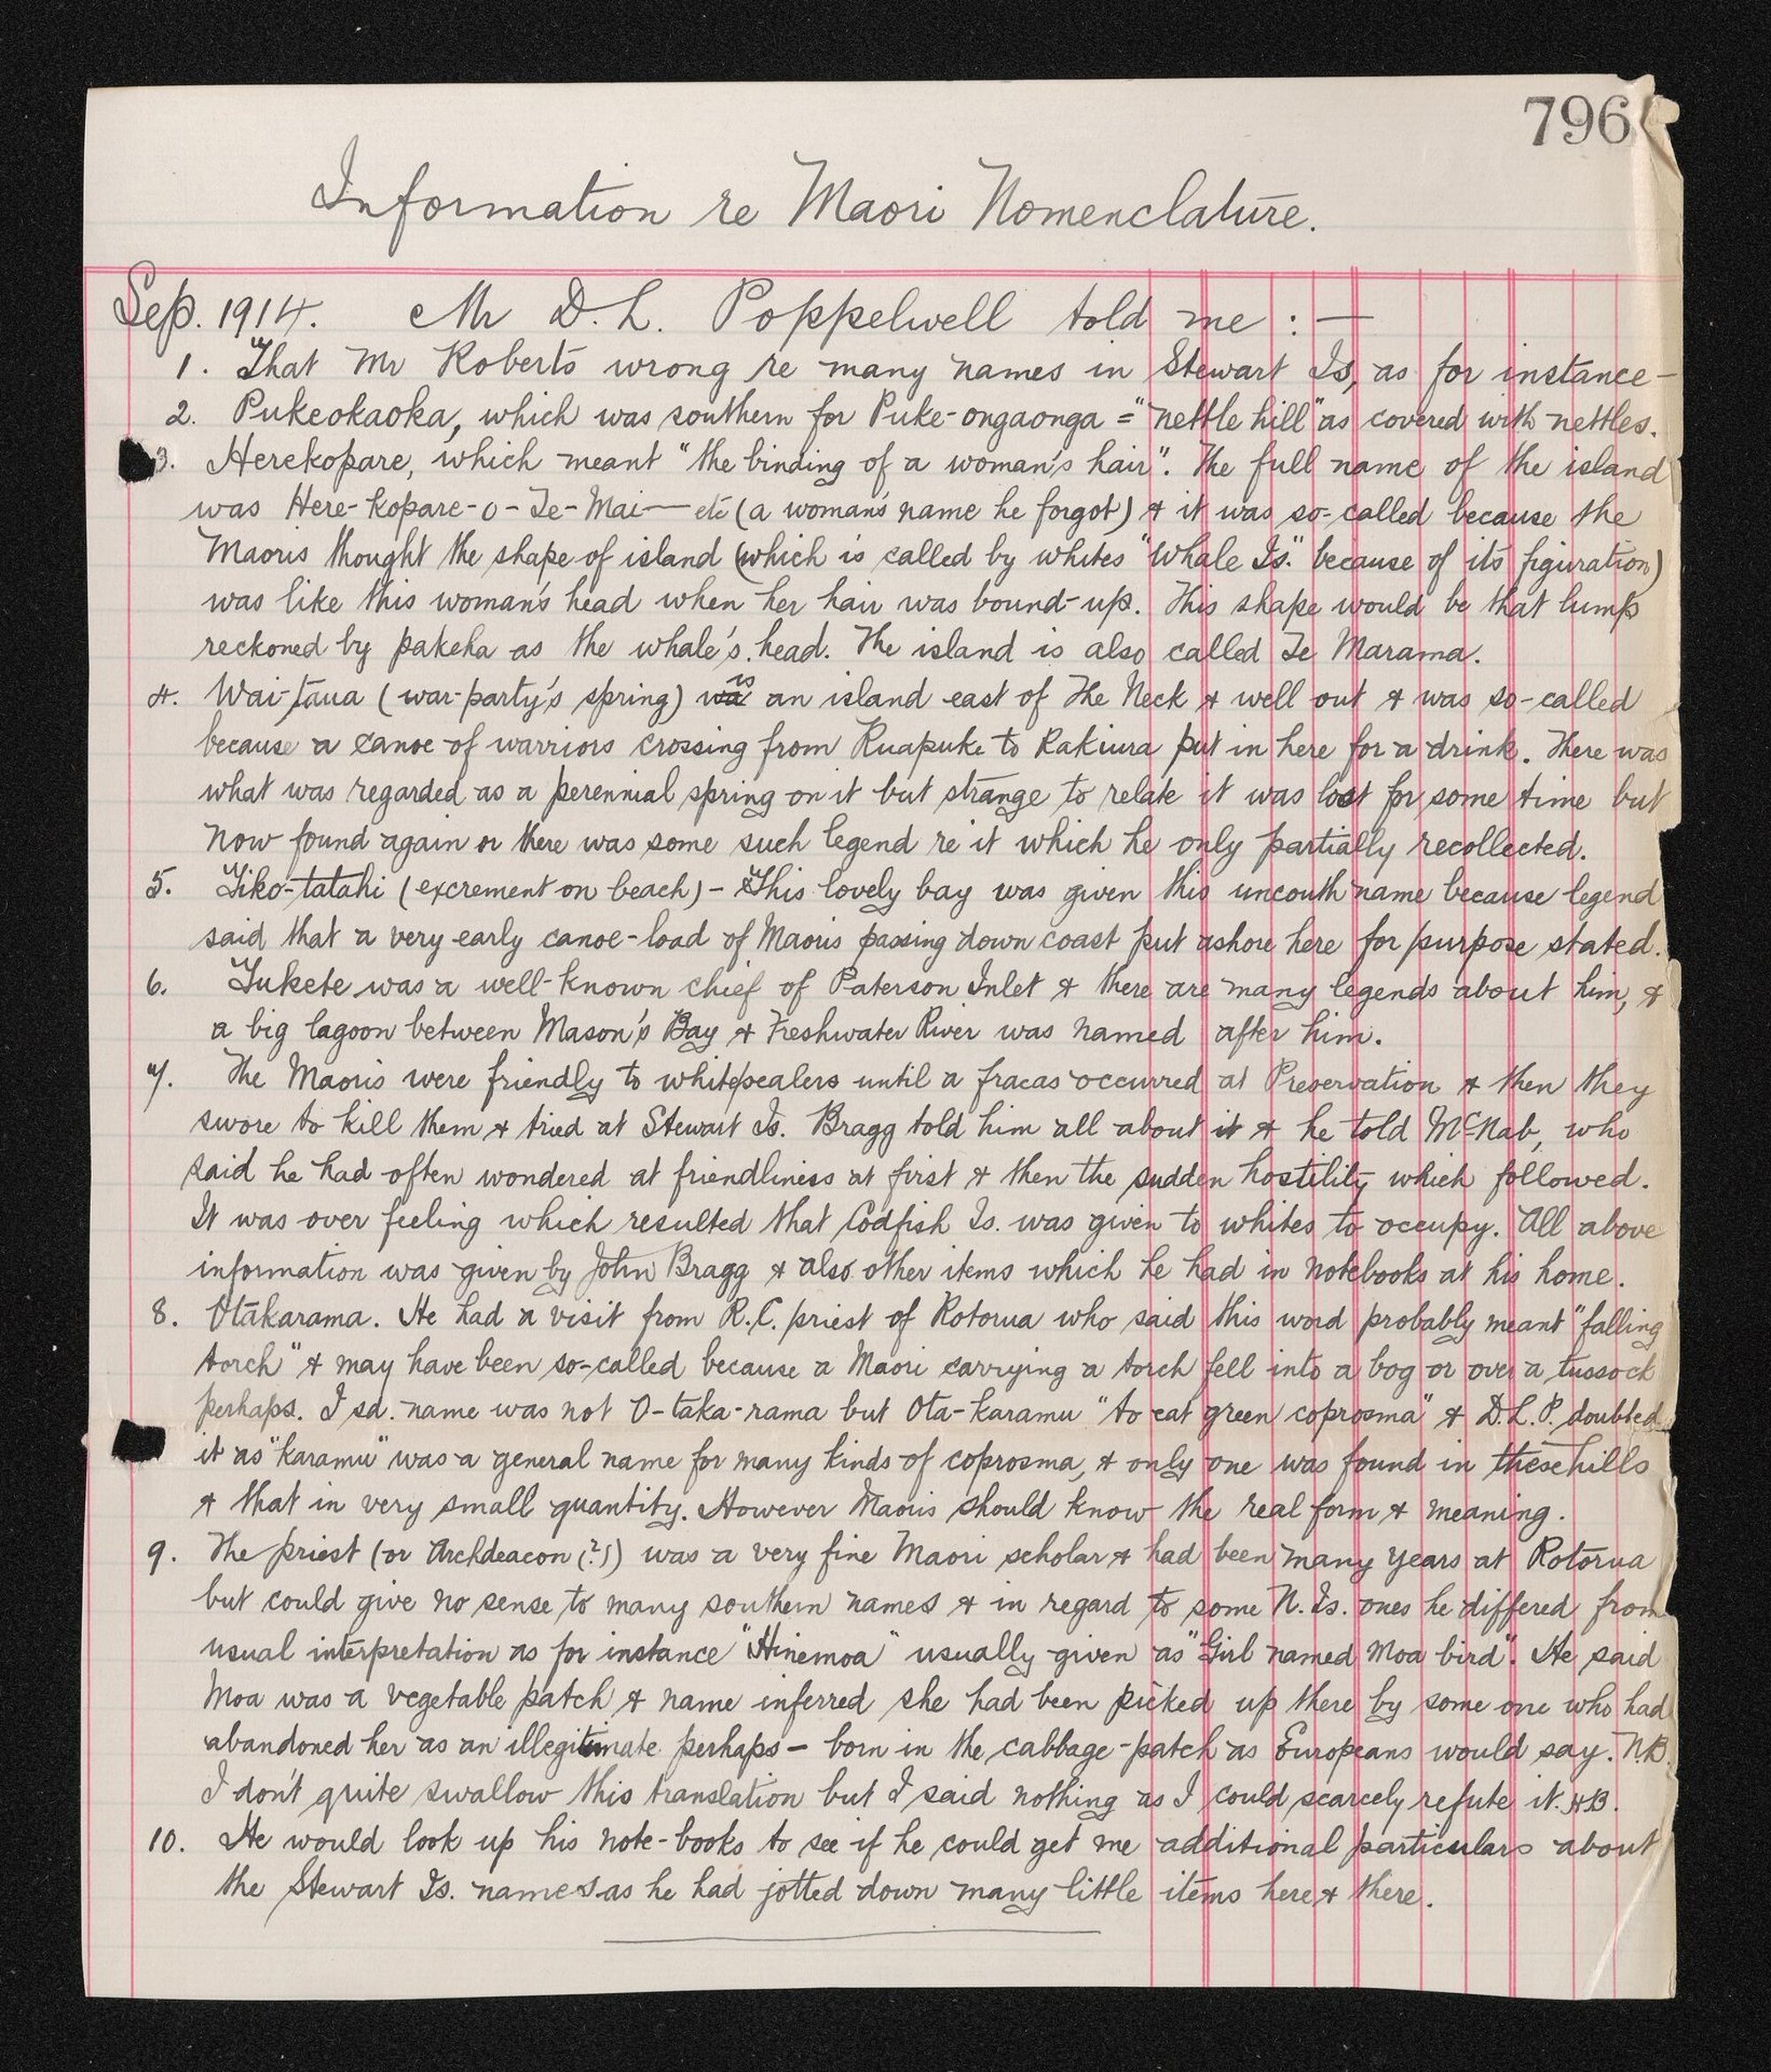 796
Information re Maori Nomenclature.
Sep. 1914. Mr D. L. Poppelwell told me :—
1. That Mr Roberts wrong re many names in Stewart Is, as for instance—
2. Pukeokaoka, which was southern for Puke-ongaonga = "nettle hill" as covered with nettles.
3. Herekopare, which meant "the binding of a woman's hair". The full name of the island
was Here-kopare-o-Te-Mai— etc (a woman's name he forgot) & it was so-called because the
Maoris thought the shape of island (which is called by whites "Whale Is." because of its figuration)
was like this woman's head when her hair was bound-up. This shape would be that lump
reckoned by pakeha as the whale's head. The island is also called Te Marama.
4. Wai-taua (war-party's spring) is an island east of The Neck & well out & was so-called
because a canoe of warriors crossing from Ruapuke to Rakiura put in here for a drink. There was
what was regarded as a perennial spring on it but strange to relate it was lost for some time but
now found again or there was some such legend re it which he only partially recollected.
5. Tiko-tatahi (excrement on beach) – This lovely bay was given this uncouth name because legend
said that a very early canoe-load of Maoris passing down coast put ashore here for purpose stated.
6. Tukete was a well-known chief of Paterson Inlet & there are many legends about him, &
a big lagoon between Mason's Bay & Freshwater River was named after him.
7. The Maoris were friendly to white sealers until a fracas occurred at Preservation & then they
swore to kill them & tried at Stewart Is. Bragg told him all about it & he told McNab, who
said he had often wondered at friendliness at first & then the sudden hostility which followed.
It was over feeling which resulted that Codfish Is. was given to whites to occupy. All above
information was given by John Bragg & also other items which he had in notebooks at his home.
8. Otakarama. He had a visit from R.C. priest of Rotorua who said this word probably meant "falling
torch" & may have been so-called because a Maori carrying a torch fell into a bog or over a tussock
perhaps. I sd. name was not O-taka-rama but Ota-karamu "to eat green coprosma" & D.L.P. doubted
it as "karamu" was a general name for many kinds of coprosma, & only one was found in these hills
& that in very small quantity. However Maoris should know the real form & meaning.
9. The priest (or Archdeacon (?)) was a very fine Maori scholar & had been many years at Rotorua
but could give no sense to many southern names & in regard to some N. Is. ones he differed from
usual interpretation as for instance "Hinemoa" usually given as "Girl named Moa bird". He said
Moa was a vegetable patch & name inferred she had been picked up there by some one who had
abandoned her as an illegitimate perhaps – born in the cabbage-patch as Europeans would say. N.B.
I don't quite swallow this translation but I said nothing as I could scarcely refute it. HB.
10. He would look up his note-books to see if he could get me additional particulars about
the Stewart Is. names as he had jotted down many little items here & there.